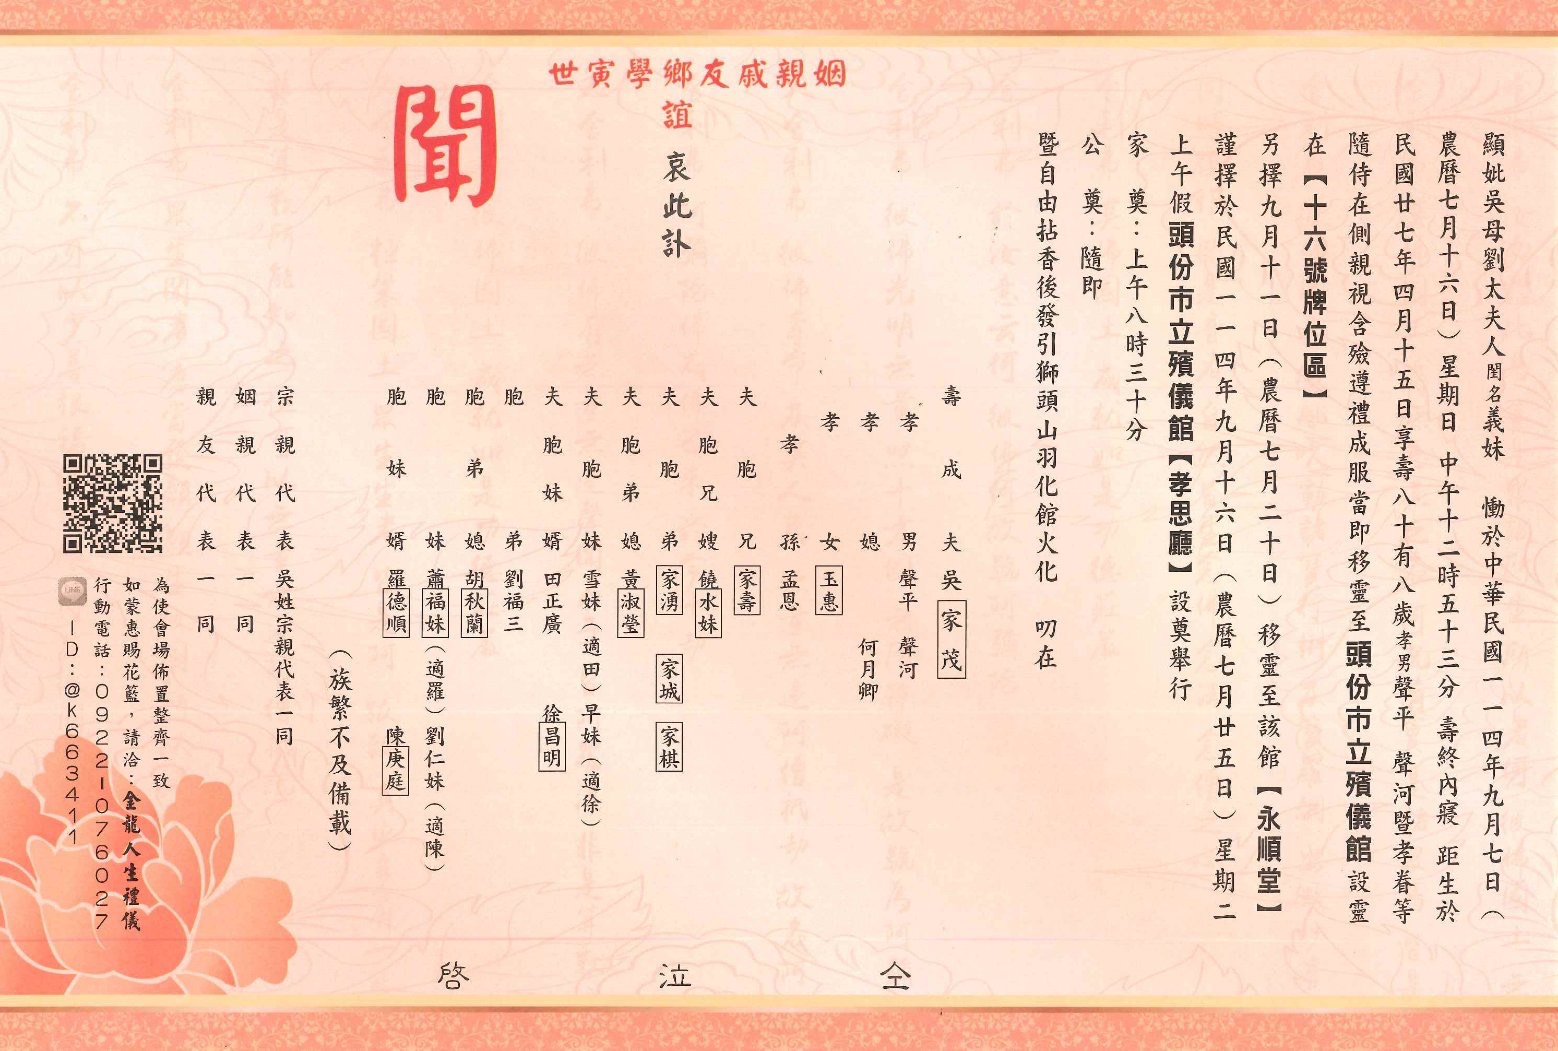 顯妣吳母劉太夫人閨名義妹　慟於中華民國一一四年九月七日（
農曆七月十六日）星期日 中午十二時五十三分 壽終內寢 距生於
民國廿七年四月十五日享壽八十有八歲孝男聲平　聲河暨孝眷等
隨侍在側親視含殮遵禮成服當即移靈至頭份市立殯儀館設靈
在【十六號牌位區】
另擇九月十一日（農曆七月二十日）移靈至該館【永順堂】
謹擇於民國一一四年九月十六日（農曆七月廿五日）星期二
上午假頭份市立殯儀館【孝思廳】設奠舉行
家　奠：上午八時三十分
公　奠：隨即
暨自由拈香後發引獅頭山羽化館火化　叨在
姻親戚友鄉學寅世
誼　哀此訃
聞
壽成夫 吳家茂
孝男 聲平　聲河
孝媳 何月卿
孝女 玉惠
孝孫 孟恩
夫胞兄 家壽
夫胞兄嫂 饒水妹
夫胞弟 家湧　家城　家棋
夫胞弟媳 黃淑瑩
夫胞妹 雪妹（適田）早妹（適徐）
夫胞妹婿 田正廣　徐昌明
胞弟 劉福三
胞弟媳 胡秋蘭
胞妹 蕭福妹（適羅）劉仁妹（適陳）
胞妹婿 羅德順　陳庚庭
（族繁不及備載）
仝泣啓
宗親代表 吳姓宗親代表一同
姻親代表一同
親友代表一同
為使會場佈置整齊一致
如蒙惠賜花籃，請洽：金龍人生禮儀
行動電話：0922-076027
LINE ID：@k663411